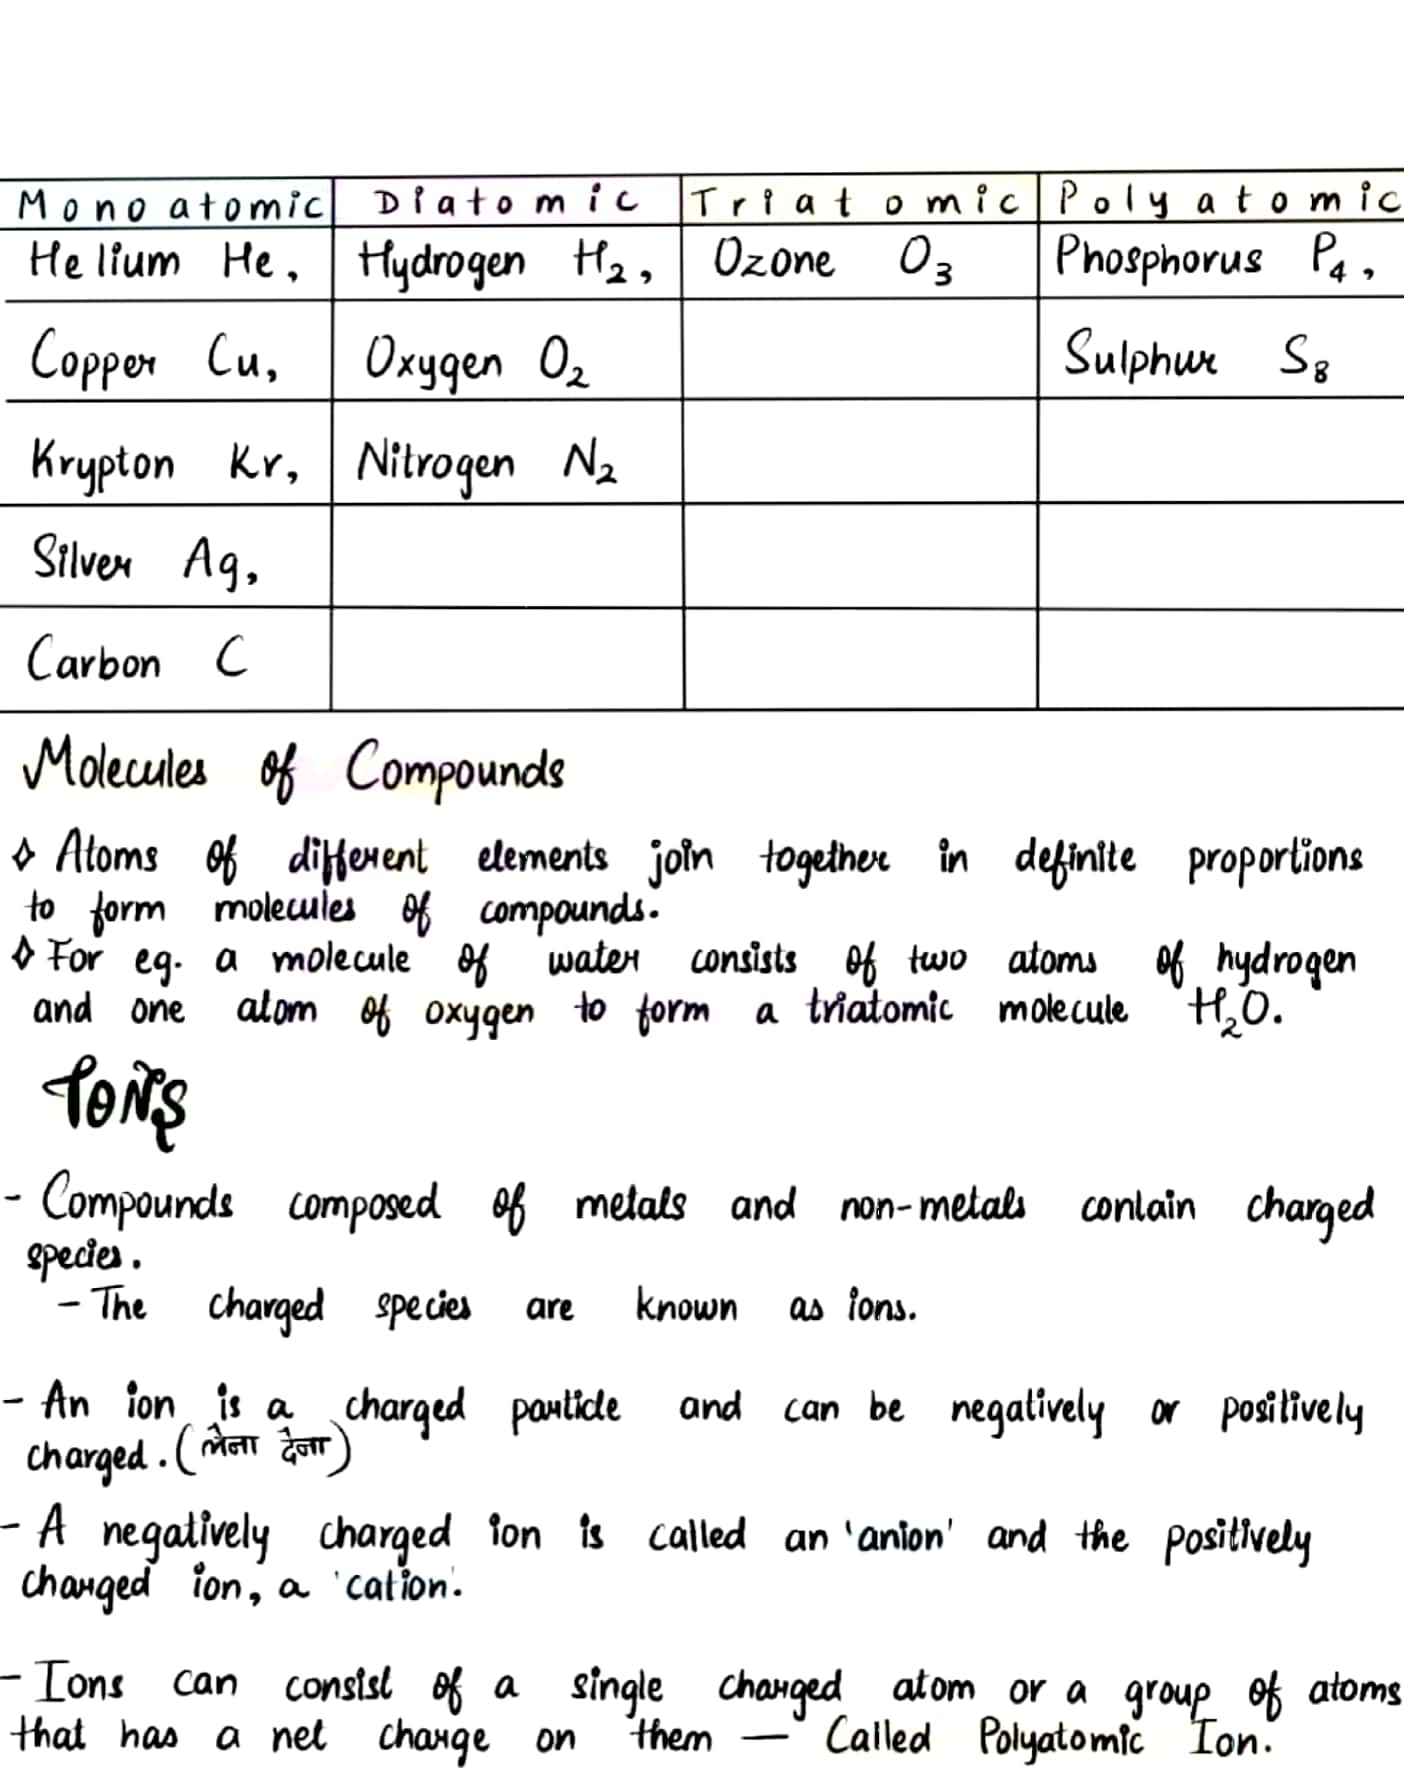 Monoatomic Diatomic Triatomic Polyatomic
Helium He, Hydrogen H₂, Ozone O₃ Phosphorus P₄,
Copper Cu, Oxygen O₂ Sulphur S₈
Krypton Kr, Nitrogen N₂
Silver Ag,
Carbon C
Molecules of Compounds
◊ Atoms of different elements join together in definite proportions
to form molecules of compounds.
◊ For eg. a molecule of water consists of two atoms of hydrogen
and one atom of oxygen to form a triatomic molecule H₂O.
IONS
- Compounds composed of metals and non-metals contain charged
species.
- The charged species are known as ions.
- An ion is a charged particle and can be negatively or positively
charged. (लेना देना)
- A negatively charged ion is called an 'anion' and the positively
charged ion, a 'cation'.
- Ions can consist of a single charged atom or a group of atoms
that has a net charge on them — Called Polyatomic Ion.